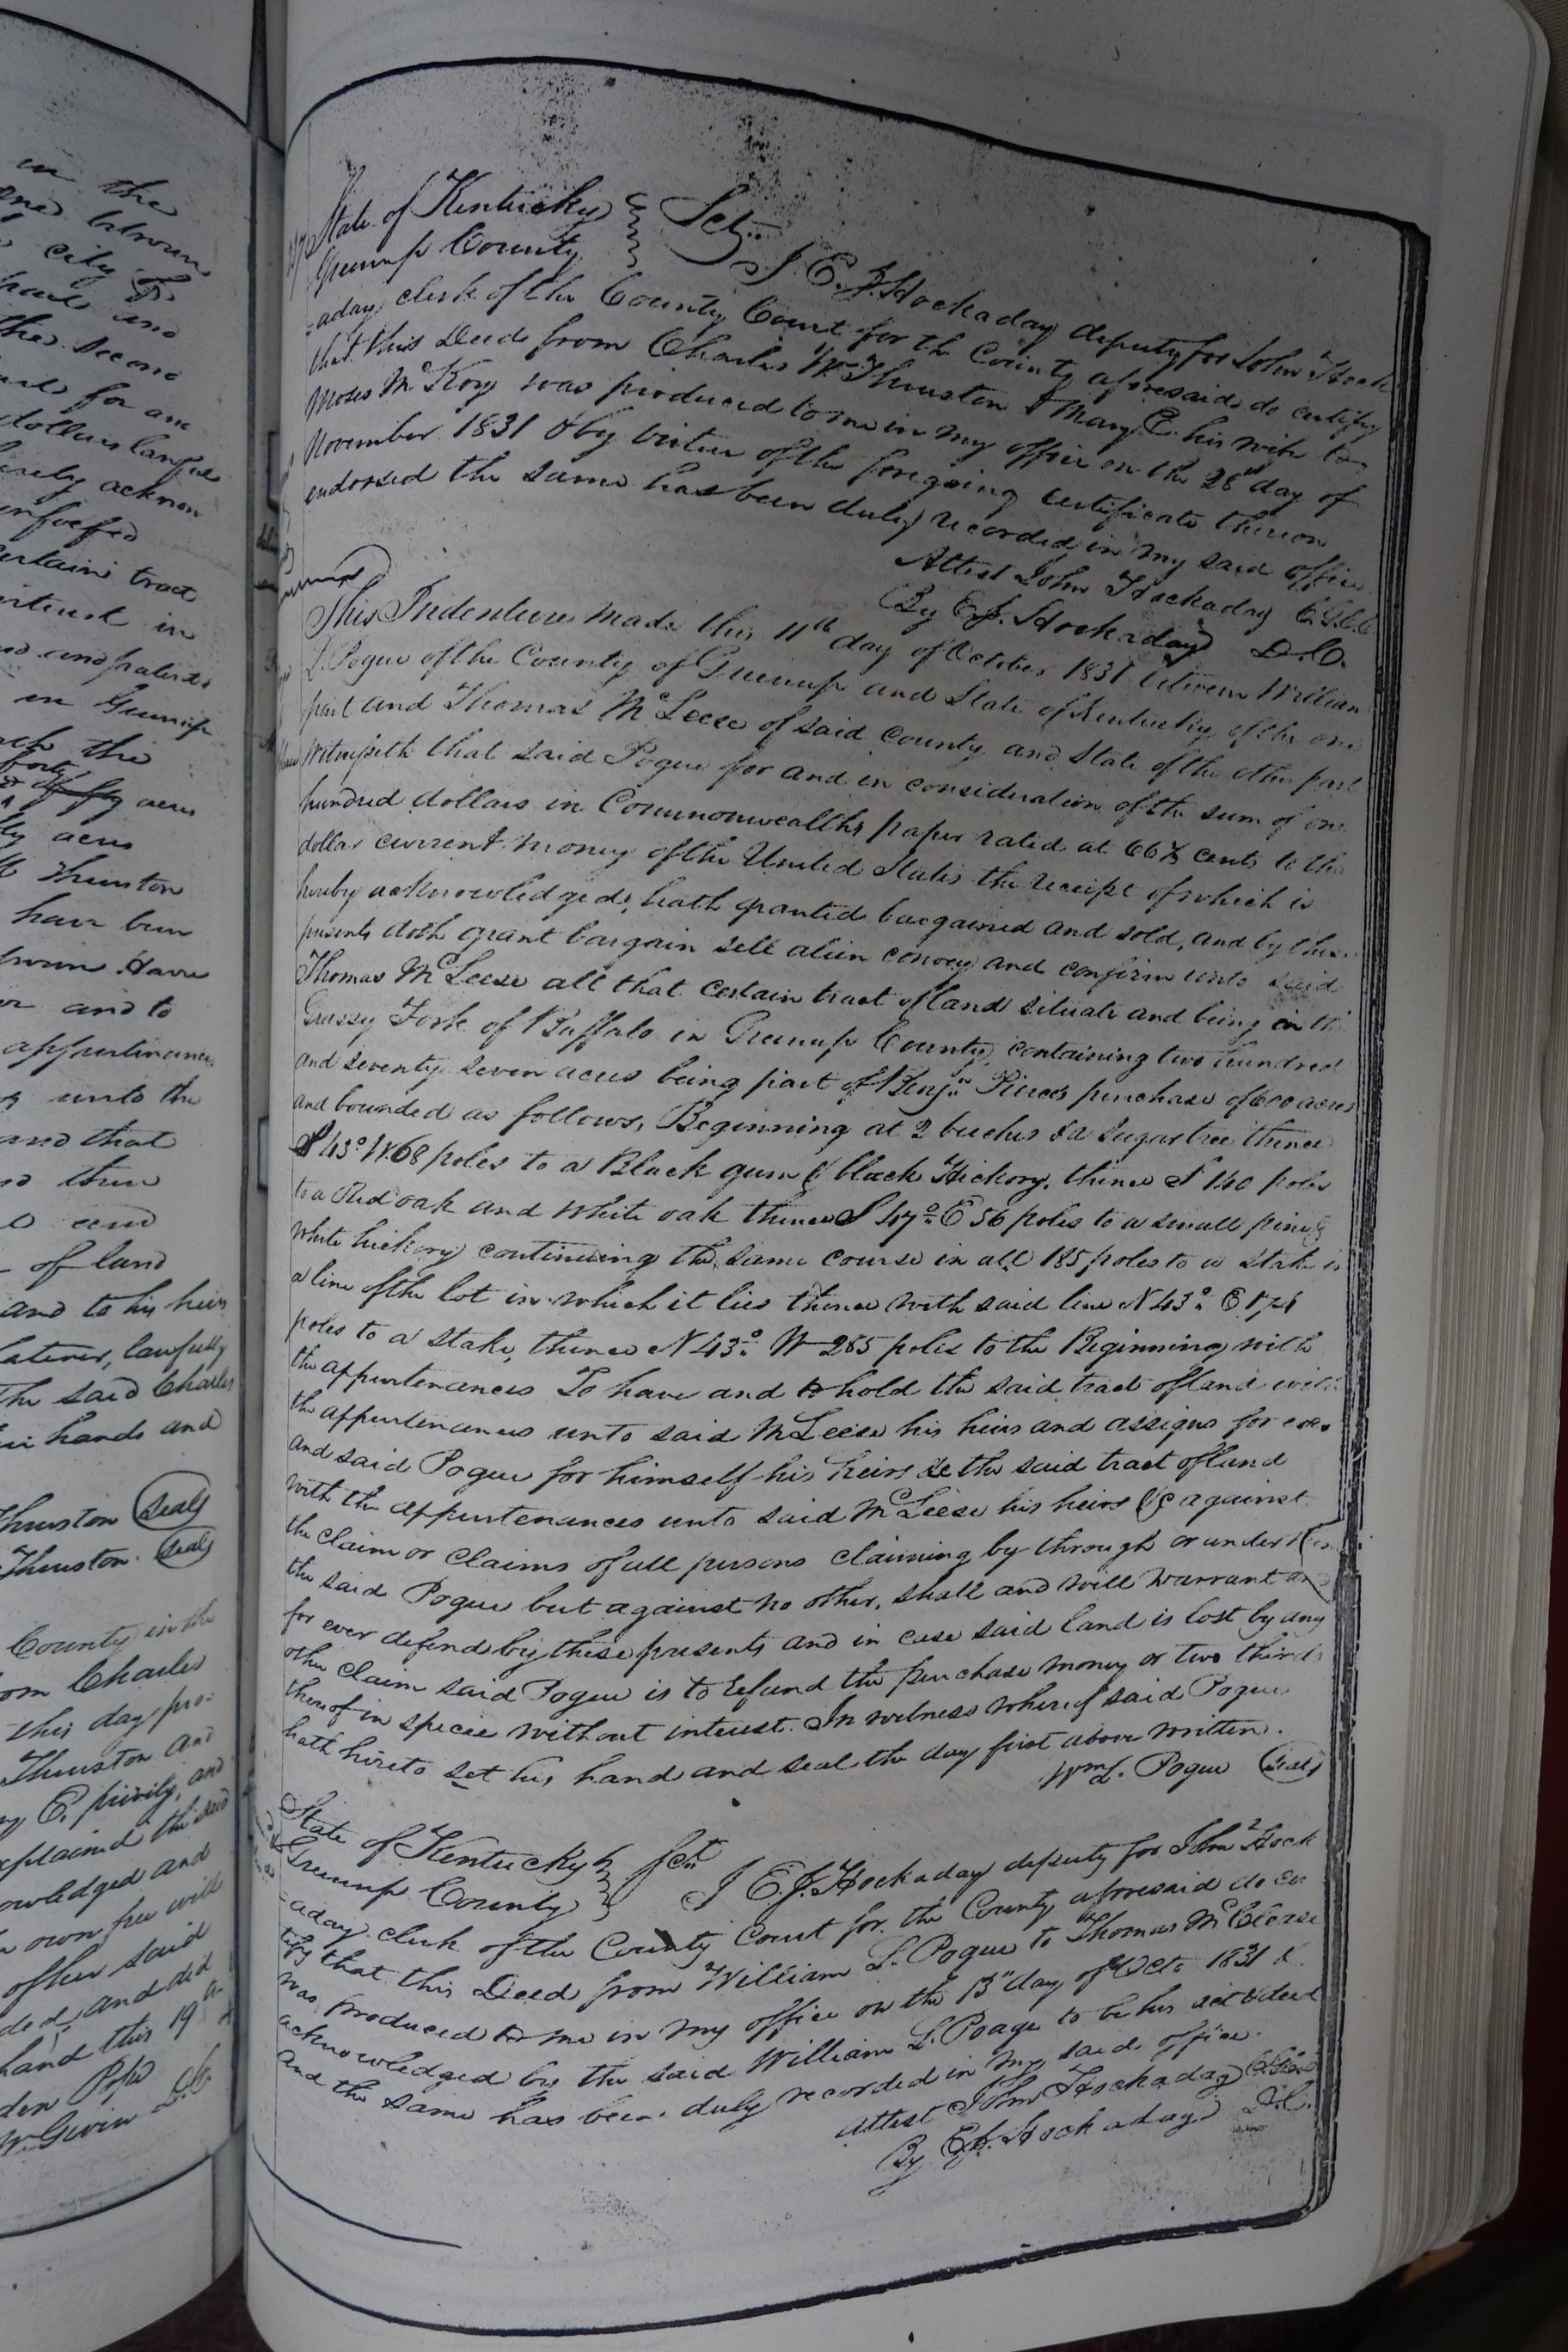 in the
city of
the second
for and
dollars lawful
acknow
enfeoffed
certain tract
interest in
and patents
in Greenup
the
forty
acres
acres
Thruston
have been
have
and to
appurtenances
unto the
and that
then
and
of land
and to his heirs
lawfully
the said Charles
hands and
Thruston (Seal)
Thruston (Seal)
County in the
from Charles
this day pro-
Thruston and
E. privily, and
explained the said
acknowledged and
own free will
of her said
and did
hand this 19
State of Kentucky } Sct.
Greenup County
I E. J. Hockaday deputy for John Hock
-aday clerk of the County Court for the County aforesaid do certify
that this Deed from Charles W. Thruston & Mary E. his wife to
Moses McKoy was produced to me in my office on the 28th day of
November 1831 & by virtue of the foregoing certificate thereon
endorsed the same has been duly recorded in my said office
Attest John Hockaday C.G.C.C.
By E. J. Hockaday D.C.
This Indenture made this 11th day of October 1831 between William
L. Pogue of the County of Greenup and State of Kentucky of the one
part and Thomas McLeese of said County and State of the other part
Witnesseth that said Pogue for and in consideration of the sum of one
hundred dollars in Commonwealths paper rated at 66⅔ cents to the
dollar current money of the United States the receipt of which is
hereby acknowledged, hath granted bargained and sold, and by these
presents doth grant bargain sell alien convey and confirm unto said
Thomas McLeese all that certain tract of land situate and being in the
Grassy Fork of Buffalo in Greenup County, containing two hundred
and seventy seven acres being part of Benjn. Pierces purchase of 600 acres
and bounded as follows, Beginning at 2 buches & a Sugartree thence
S 43° W 68 poles to a Black gum & black Hickory, thence S 140 poles
to a Red oak and White oak thence S 47° E 56 poles to a small pine &
white hickory continueing the same course in all 185 poles to a stake in
a line of the lot in which it lies thence with said line N 43° E
poles to a Stake, thence N 43° W 285 poles to the Beginning with
the appurtenances To have and to hold the said tract of land with
the appurtenances unto said McLeese his heirs and assigns for ever
and said Pogue for himself his heirs &c the said tract of land
with the appurtenances unto said McLeese his heirs &c against
the claim or claims of all persons claiming by through or under him
the said Pogue but against no other, shall and will warrant and
for ever defend by these presents and in case said land is lost by any
other claim said Pogue is to refund the purchase money or two thirds
thereof in specie without interest. In witness whereof said Pogue
hath hireto set his hand and seal the day first above written.
Wm. L. Pogue (Seal)
State of Kentucky } Sct
Greenup County
I E. J. Hockaday deputy for John Hock
-aday clerk of the County Court for the County aforesaid do cer
tify that this Deed from William L. Pogue to Thomas McCleese
was produced to me in my office on the 13th day of Octo 1831 &
acknowledged by the said William L. Poage to be his act & deed
and the same has been duly recorded in my said office.
Attest John Hockaday
By E. J. Hockaday D.C.